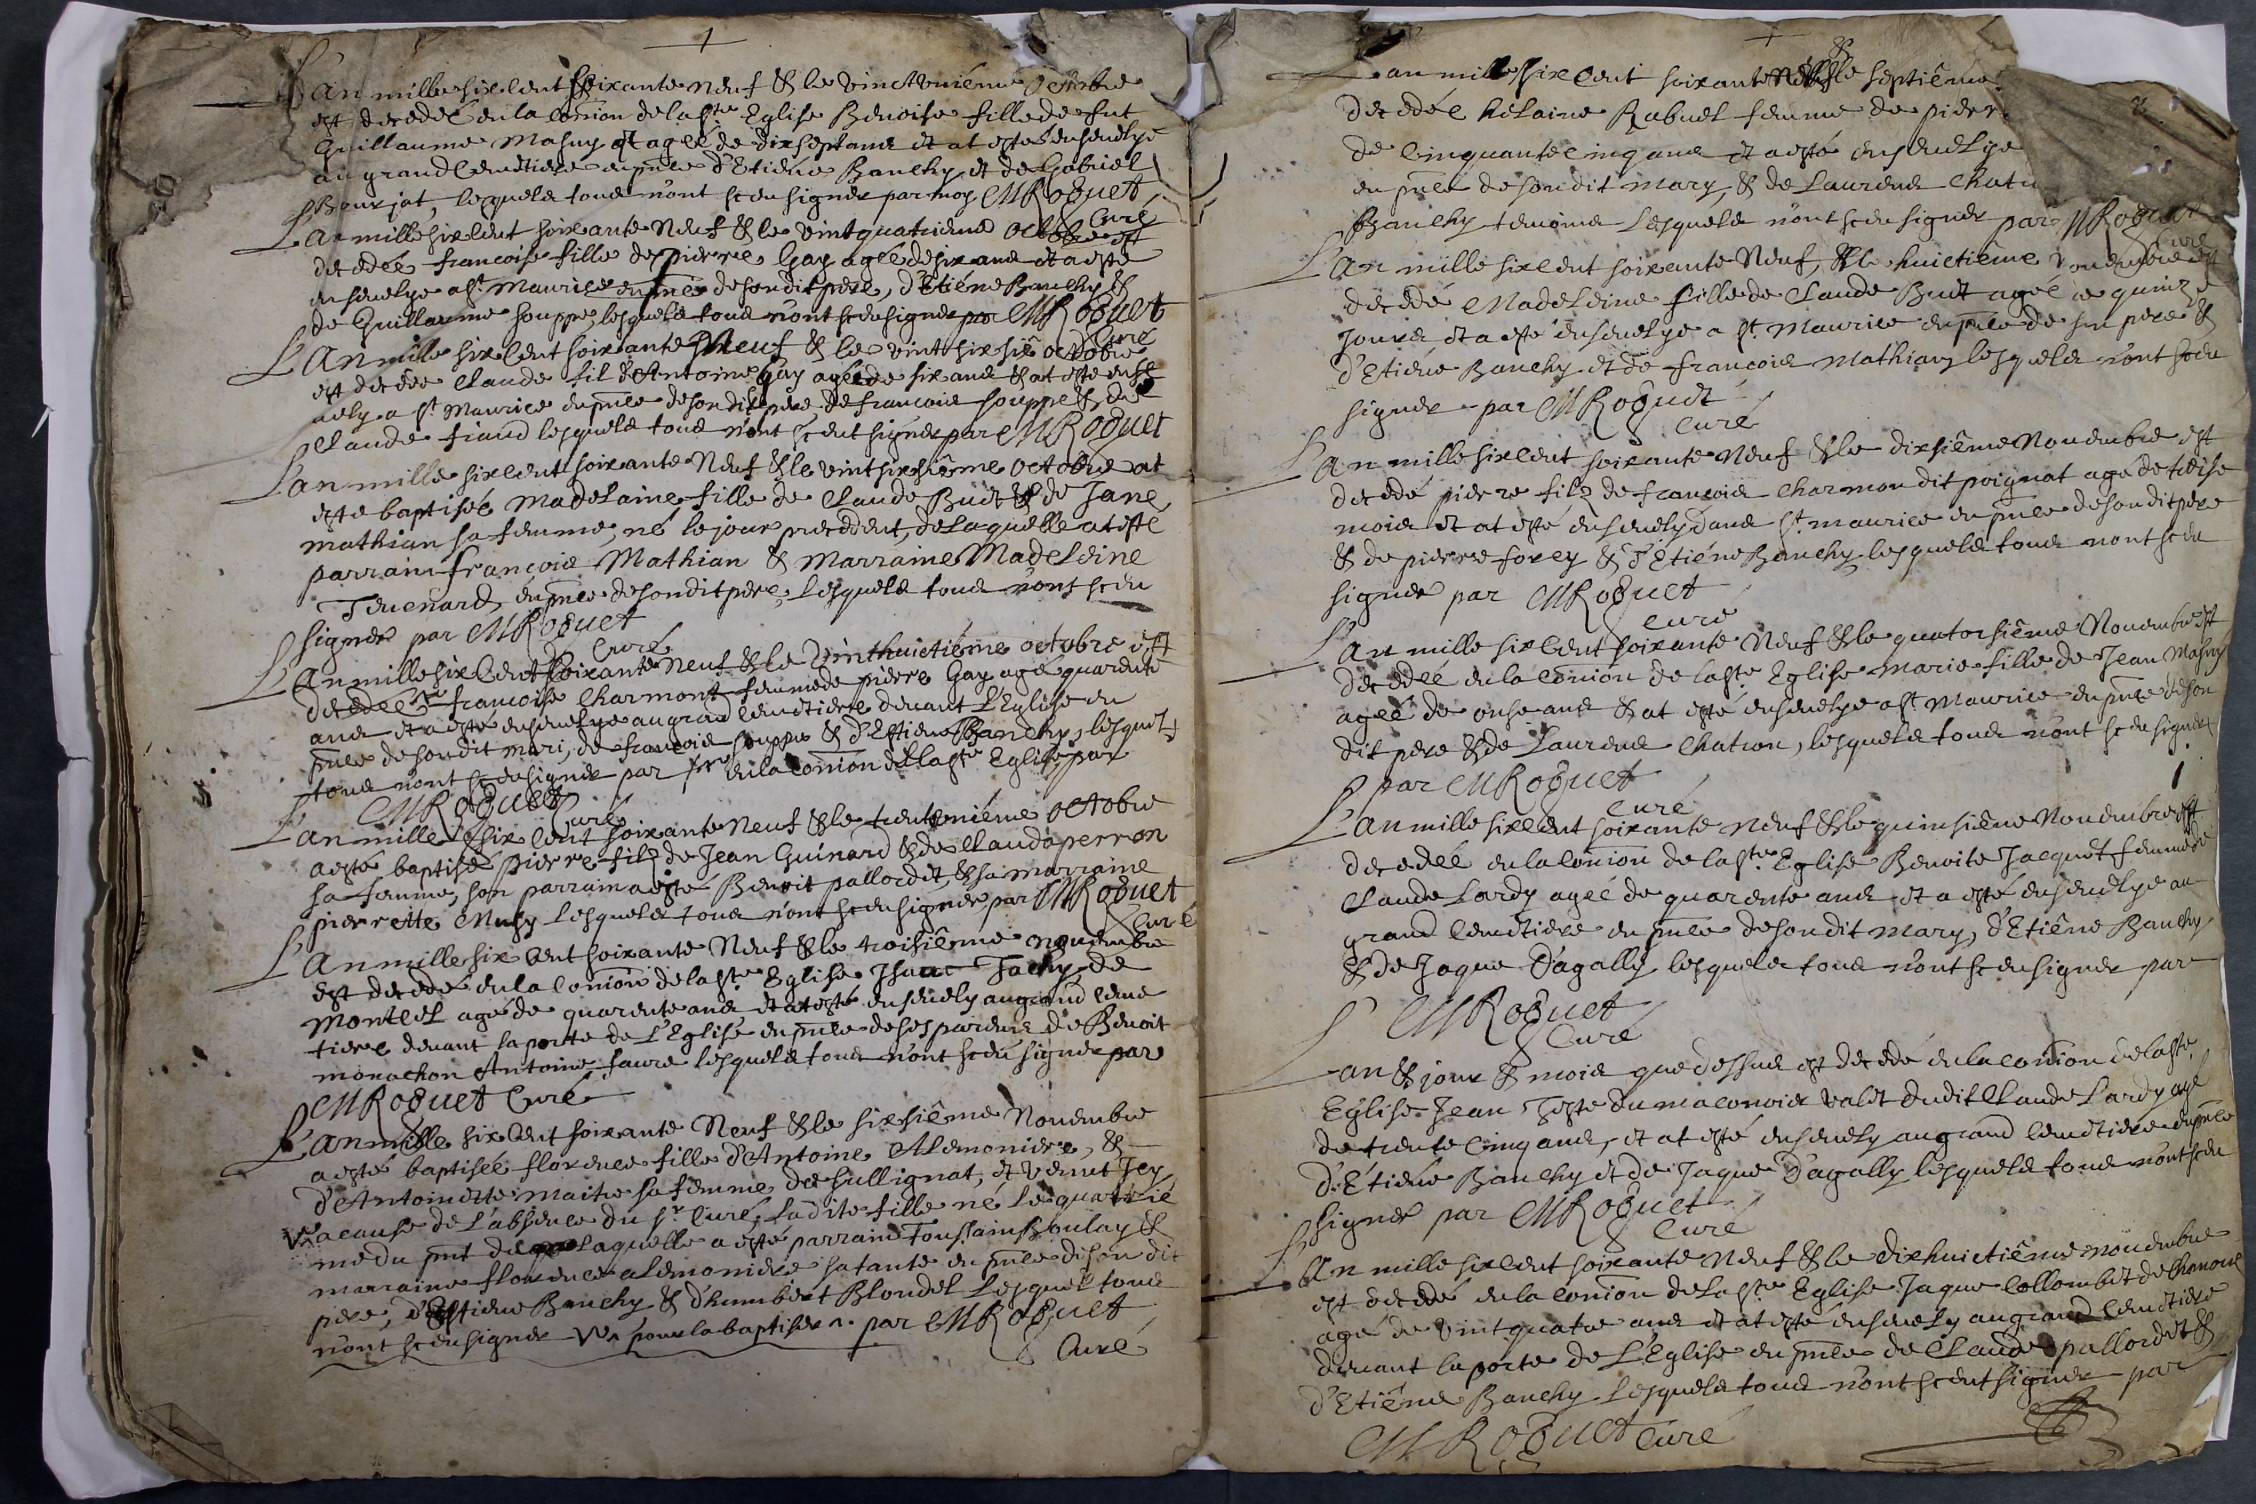 L'an mille six cent soixante neuf & le vinct uniéme octobre
est decedeé en la cōmion de la ste Eglise Benoise fille de fut
Guillaume Masuy et ageé de dix sept ans et at esté ensevelye
au grand cemetiere en pñce d'Etiéne Banchy et de Gabriel
Bourjat, lesquels tous n'ont sceu signer par moy MRoguet
Curé
L'an mille six cent soixante neuf & le vint quatriéme octobre est
decedeé francoise fille de pierre Gay ageé de six ans et a esté
ensevelye a st Maurice en pñce de son dit pere, d'Etiéne Banchy &
de Guillaume souppe, lesquels tous n'ont sceu signer par MRoguet
Curé
L'An mille six cent soixante neuf & le vint sixsiê octobre
est decedee Claude fil d'Antoine Gay ageé de six ans & at esté ense
vely a st Maurice en pñce de son dit pere de francois souppe & de
Claude fiaud lesquels tous n'ont sceut signer par MRoguet
L'an mille six cent soixante neuf & le vint sixsiême octobre at
esté baptiseé Madelaine fille de Claude Buet & de Jane
mathian sa femme, né le jour precedent, de laquelle at esté
parrain françois Mathian & Marraine Madeleine
Tevenard en pñce de son dit pere, lesquels tous n'ont sceu
signer par MRoguet
Curé
L'An mille six cent soixante neuf & le vinthuictiéme octobre est
decedeé francoise Charmont femme de pierre Gay agé quarente
ans et a esté ensevelye au grād cemetiere devant l'Eglise en
pñce de son dit mari, de francois souppe & d'Estiene Banchy, lesquels
tous n'ont sceu signer par en la cōmion de la ste Eglise, par
MRoguet
Curé
L'an mille six cent soixante neuf & le trentuniéme octobre
a esté baptisé pierre filz de Jean Guinard & de Clauda perron
sa femme, son parrain a esté Benoit pallordet, & sa marraine
pierrette Musy lesquels tous n'ont sceu signer par MRoguet
Curé
L'An mille six cent soixante neuf & le troisiême novembre
est decedé en la cōmion de la ste Eglise Isaac Tachy de
Montcel agé de quarente ans et at esté ensevely au grand ceme
tiere devant la porte de l'Eglise en pñce de ses parens de Benoit
monachon Antoine faure lesquels tous n'ont sceu signer par
MRoguet Curé
L'an mille six cent soixante neuf & le sixsiême Novembre
a esté baptiseé florence fille d'Antoine Alemoniere, &
d'Antoinette Maitre sa femme, de sullignat, et venut Icy
a cause de l'absence du sr Curé, la dite fille né le quatrié
me du pnt de laquelle a esté parrain Toussain Boulay &
marraine florence alemoniere sa tante en pñce de son dit
pere, d'Estiene Banchy & d'humbert Blondel lesquel tous
n'ont sceu signer pour la baptiser par MRoguet
Curé
L'an mille six cent soixante neuf & le septiême
decedeé helaine Rabuel femme de pierre
de cinquante cinq ans et a esté ensevelye
en pñce de son dit mary, & de Laurens Chatr
Banchy temoins lesquels n'ont sceu signer par MRoguet
Curé
L'An mille six cent soixante neuf, & le huictiême novembre est
decedé Madeleine fille de Claude Buet ageé de quinze
jours et a esté ensevelye a st Maurice en pñce de son pere &
d'Etiéne Banchy et de francois mathian, lesquels n'ont sceu
signer par MRoguet
Curé
L'an mille six cent soixante neuf & le dixsiême Novembre est
decedé pierre filz de francois Charmon dit poignat agé de treise
mois et at esté ensevely dans st maurice en pñce de son dit pere
& de pierre forey & d'Etiéne Banchy lesquels tous n'ont sceu
signer par MRoguet
Curé
L'an mille six cent soixante neuf & le quatorsiême Novembre est
decedeé en la cōmion de la ste Eglise marie fille de Jean Masuy
ageé de onse ans & at esté ensevelye a st Maurice en pñce de son
dit pere & de Laurens Chatron, lesquels tous n'ont sceu signer
par MRoguet
Curé
L'an mille six cent soixante neuf & le quinsiême Novembre est
decedeé en la cōmion de la ste Eglise Benoite Jacquet femme de
Claude Lardy ageé de quarente ans et a esté ensevelye au
grand cemetiere en pñce de son dit mary, d'Etiêne Banchy
& de Jaque D'agally lesquels tous n'ont sceu signer par
MRoguet
Curé
L'an & jour & mois que dessus est decedé en la cōmion de la ste
Eglise Jean Teste du maconois valet du dit Claude Lardy agé
de trente cinq ans, et at esté ensevely au grand cemetiere en pñce
d'Etiéne Banchy et de Jaque D'agally lesquels tous n'ont sceu
signer par MRoguet
Curé
L'An mille six cent soixante neuf & le dixhuictiême novembre
est decedé en la cōmion de la ste Eglise Jaque Collombet de
agé de vint quatre ans et at esté ensevely au grand cemetiere
devant la porte de l'Eglise en pñce de Claude pallordet &
d'Etiêne Banchy lesquels tous n'ont sceut signer par
MRoguet Curé